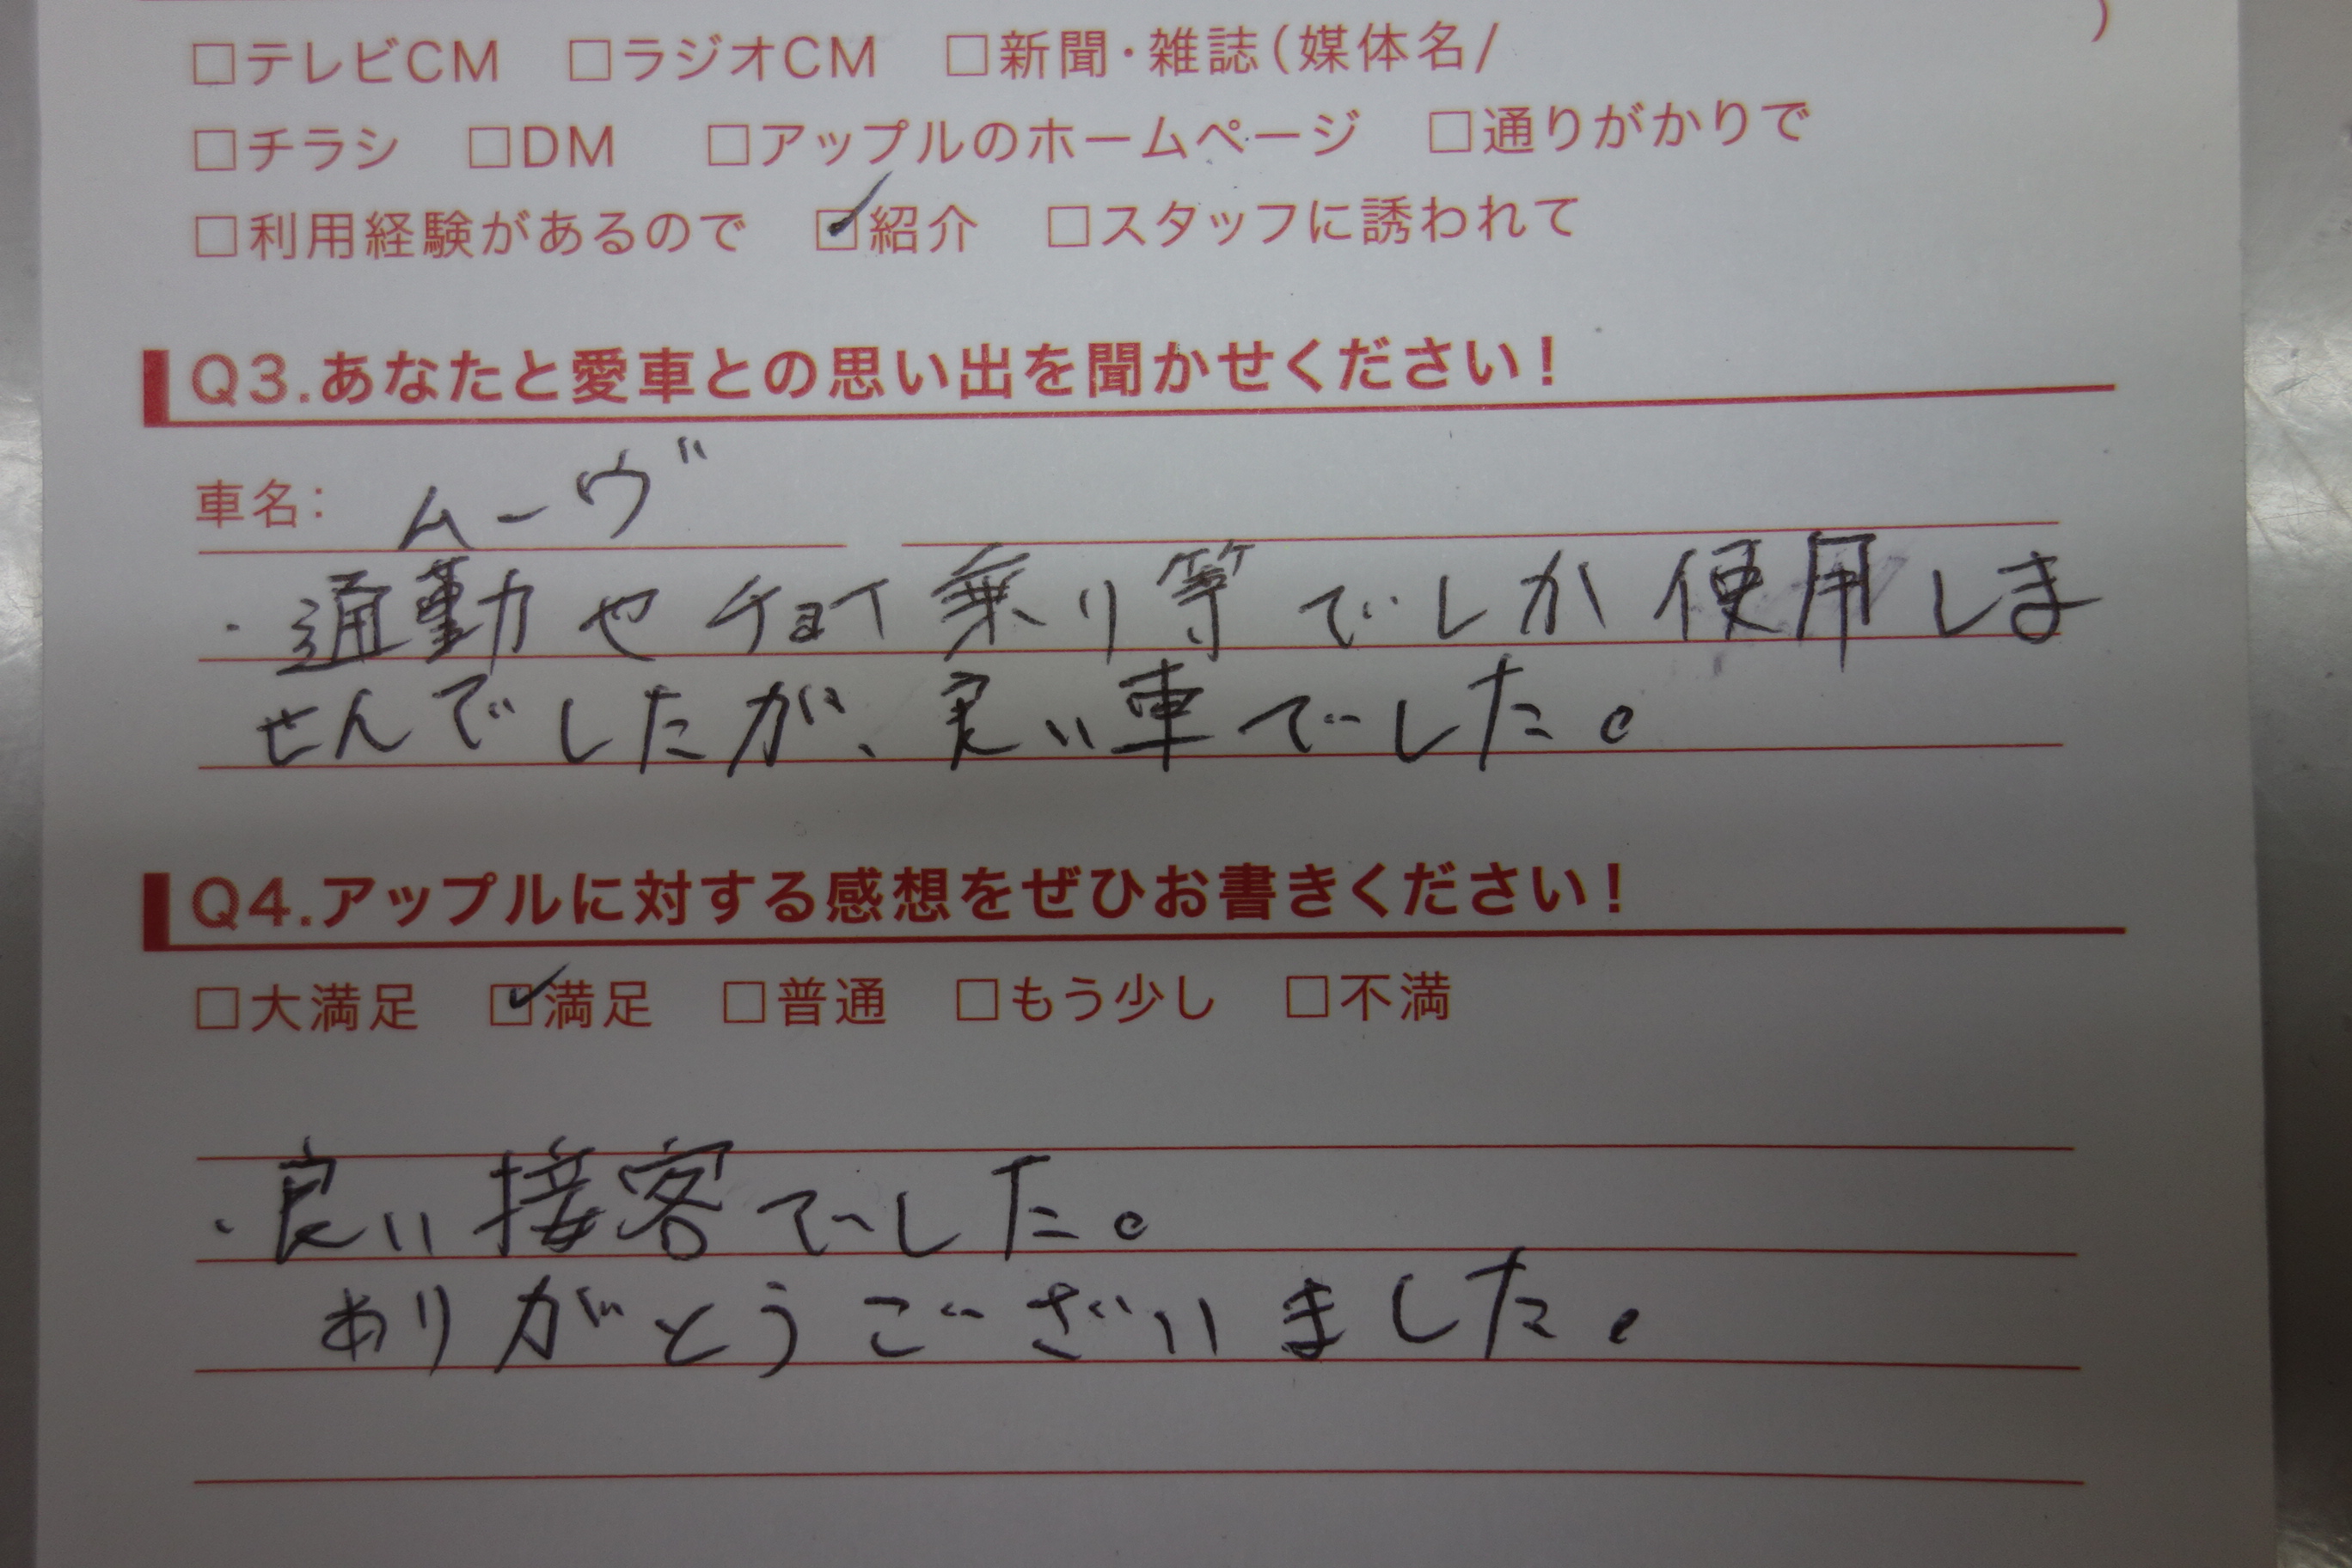 □テレビCM □ラジオCM □新聞・雑誌(媒体名/ )
□チラシ □DM □アップルのホームページ □通りがかりで
□利用経験があるので ☑紹介 □スタッフに誘われて
Q3.あなたと愛車との思い出を聞かせください!
車名: ムーヴ
・通勤やチョイ乗り等でしか使用しま
せんでしたが、良い車でした。
Q4.アップルに対する感想をぜひお書きください!
□大満足 ☑満足 □普通 □もう少し □不満
・良い接客でした。
ありがとうございました。